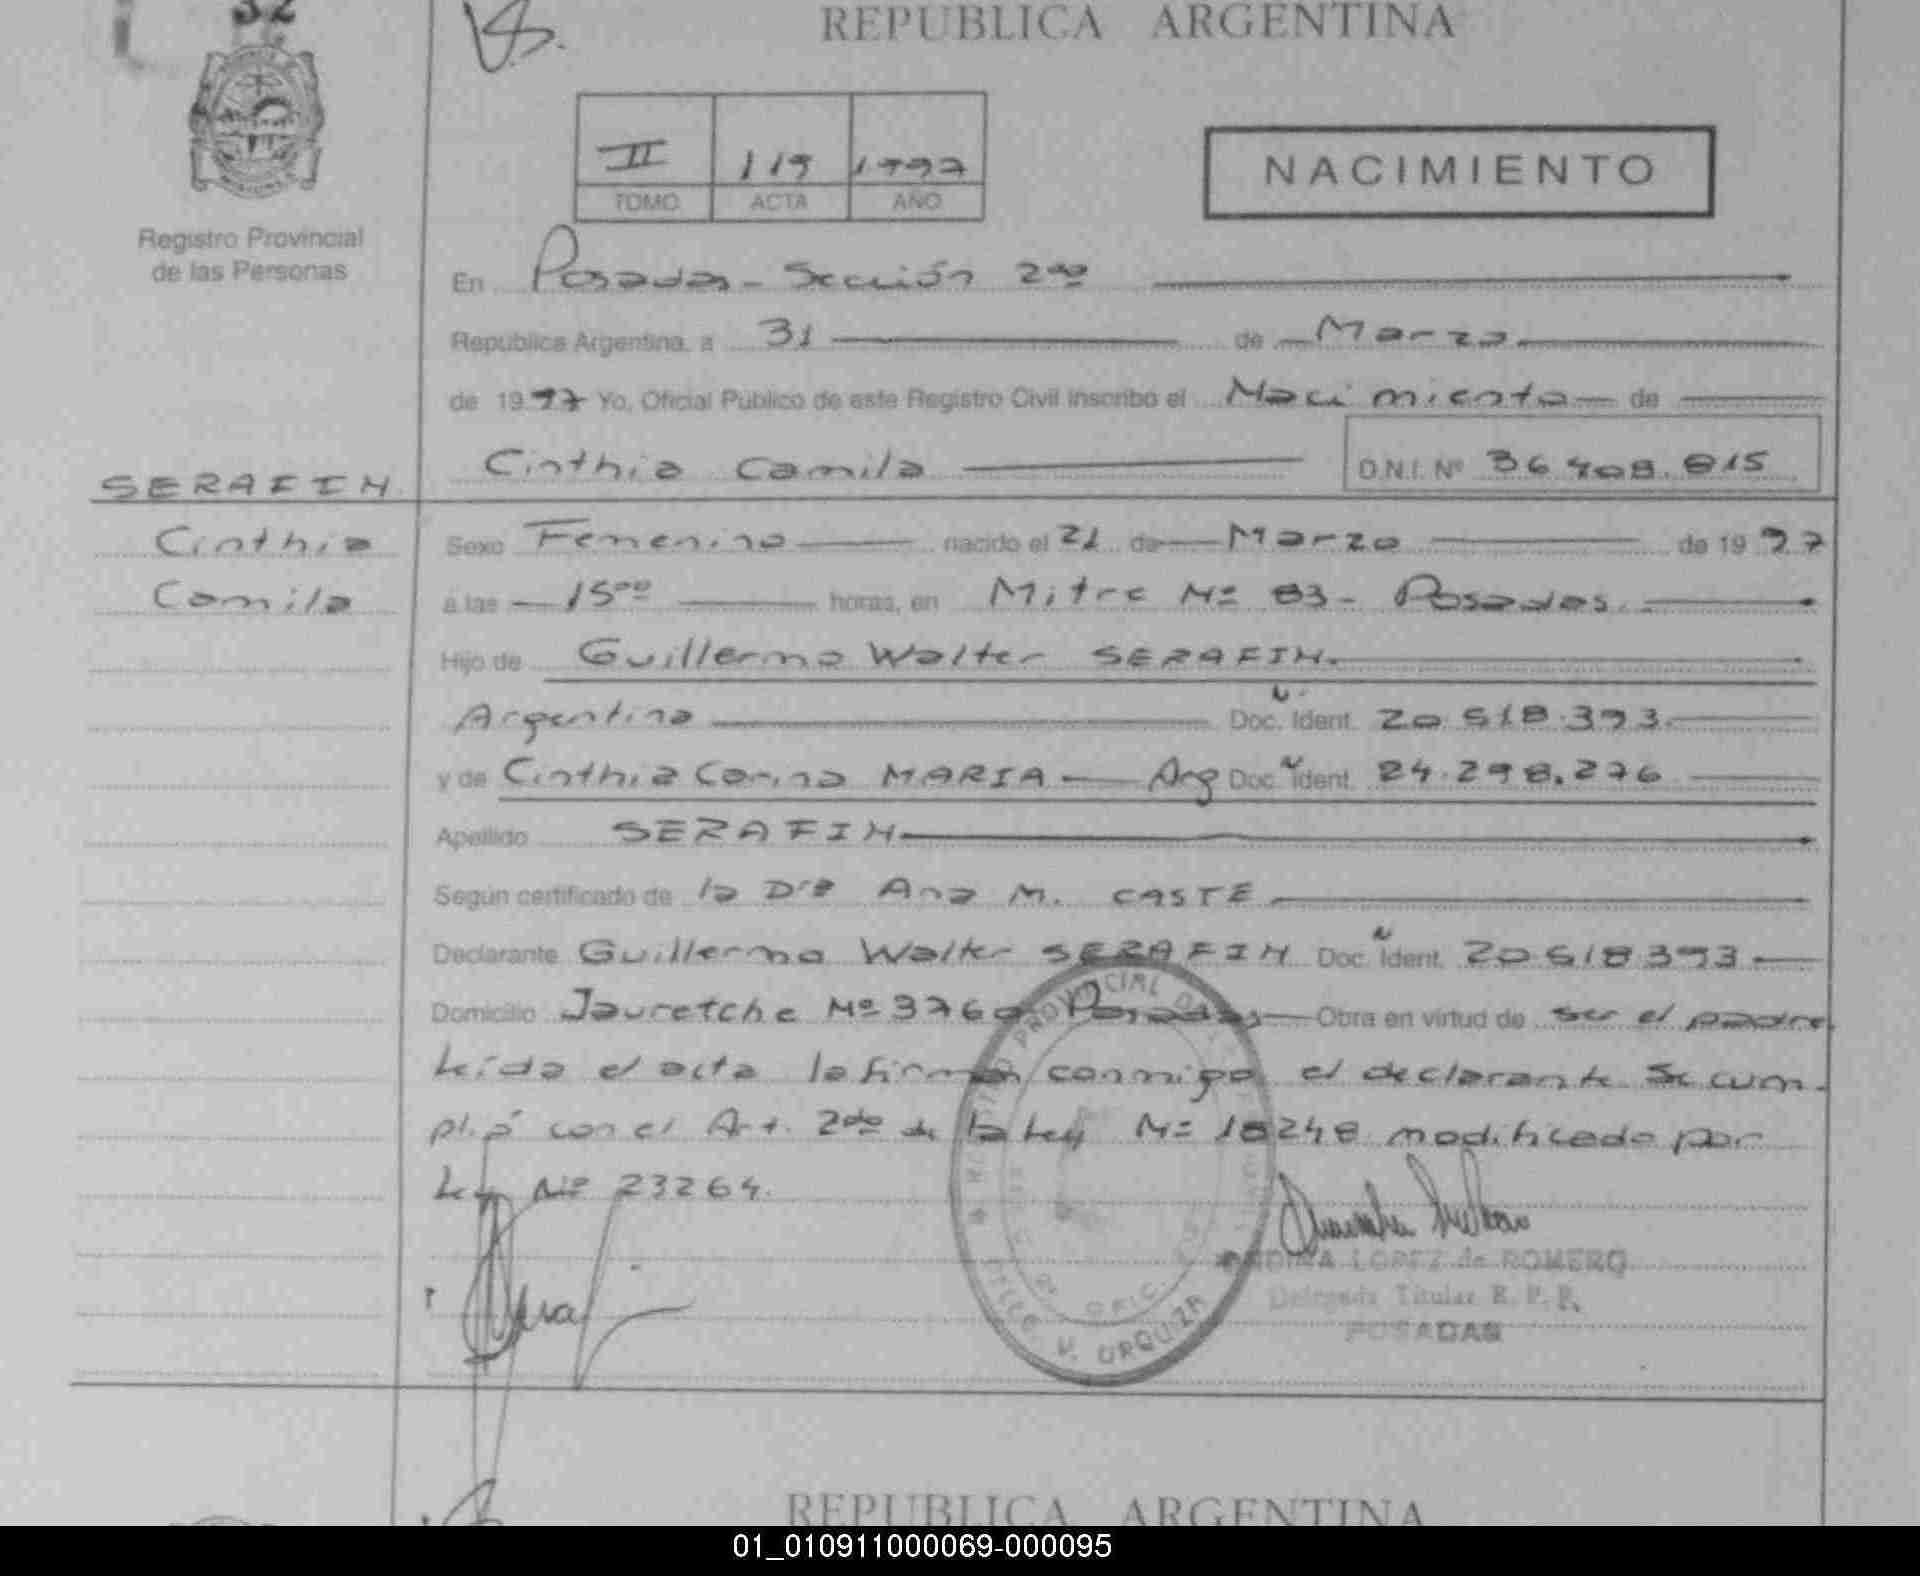 32
REPUBLICA ARGENTINA
II 119 1997
TOMO ACTA AÑO
NACIMIENTO
Registro Provincial
de las Personas
En Posadas - Sección 2da
República Argentina, a 31 de Marzo
de 1997 Yo, Oficial Público de este Registro Civil inscribo el Nacimiento de
Cinthia Camila D.N.I. Nº 36.408.815
SERAFIN
Cinthia
Camila
Sexo Femenino nacido el 21 de Marzo de 1997
a las 1500 horas, en Mitre Nº 83 - Posadas.
Hijo de Guillermo Walter SERAFIN.
Argentino Doc. Ident. 20.618.393
y de Cinthia Corina MARIA Arg Doc. Ident. 24.298.276
Apellido SERAFIN
Según certificado de la Dra Ana M. CASTE
Declarante Guillermo Walter SERAFIN Doc. Ident. 20618393
Domicilio Jauretche Nº 3760 Posadas Obra en virtud de ser el padre
Leída el acta la firman conmigo el declarante Se cum-
plió con el Art. 2do de la Ley Nº 18248 modificado por
Ley Nº 23264.
LOPEZ de ROMERO
Delegada Titular R. P. P.
POSADAS
REGISTRO PROVINCIAL DE LAS PERSONAS
OFIC.
VILLA URQUIZA
REPUBLICA ARGENTINA
01_010911000069-000095